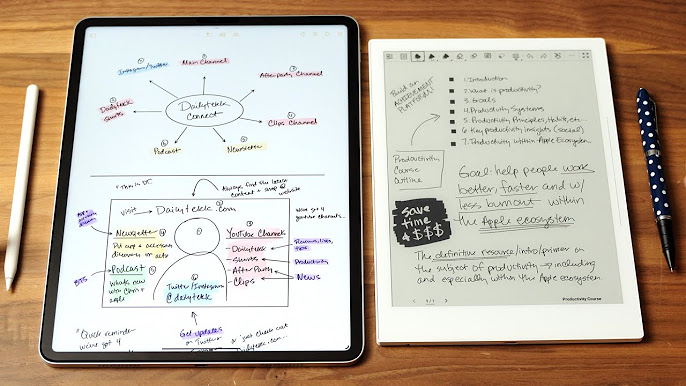 Instagram/Twitter
Main Channel
Afterparty Channel
Dailytekk
Shorts
Dailytekk
Connect
Clips Channel
Podcast
Newsletter
Always find the latest
content + shop @
website
visit Dailytekk.com
we've got 4
youtube channels...
Newsletter
YouTube Channels
Dailytekk
Shorts
After Party
Clips
Productivity
News
Podcast
what's new
with Chris &
BTS
Twitter/Instagram
@dailytekk
"Quick reminder
we've got 4
Get updates
on Twitter
or "just check out
Dailytekk.com...
Build an
ACHIEVEMENT
PLATFORM!
1. Introduction
2. What is productivity?
3. Goals
4. Productivity Systems
5. Productivity Principles, Habits, etc...
6. Key productivity insights (social)
7. Productivity within Apple Ecosystem
Productivity
Course
Outline
Goal: help people work
better, faster and w/
less burnout within
the Apple ecosystem
Save
time
& $$$
The definitive resource/intro/primer on
the subject of productivity → including
and especially within the Apple ecosystem.
1/1
Productivity Course